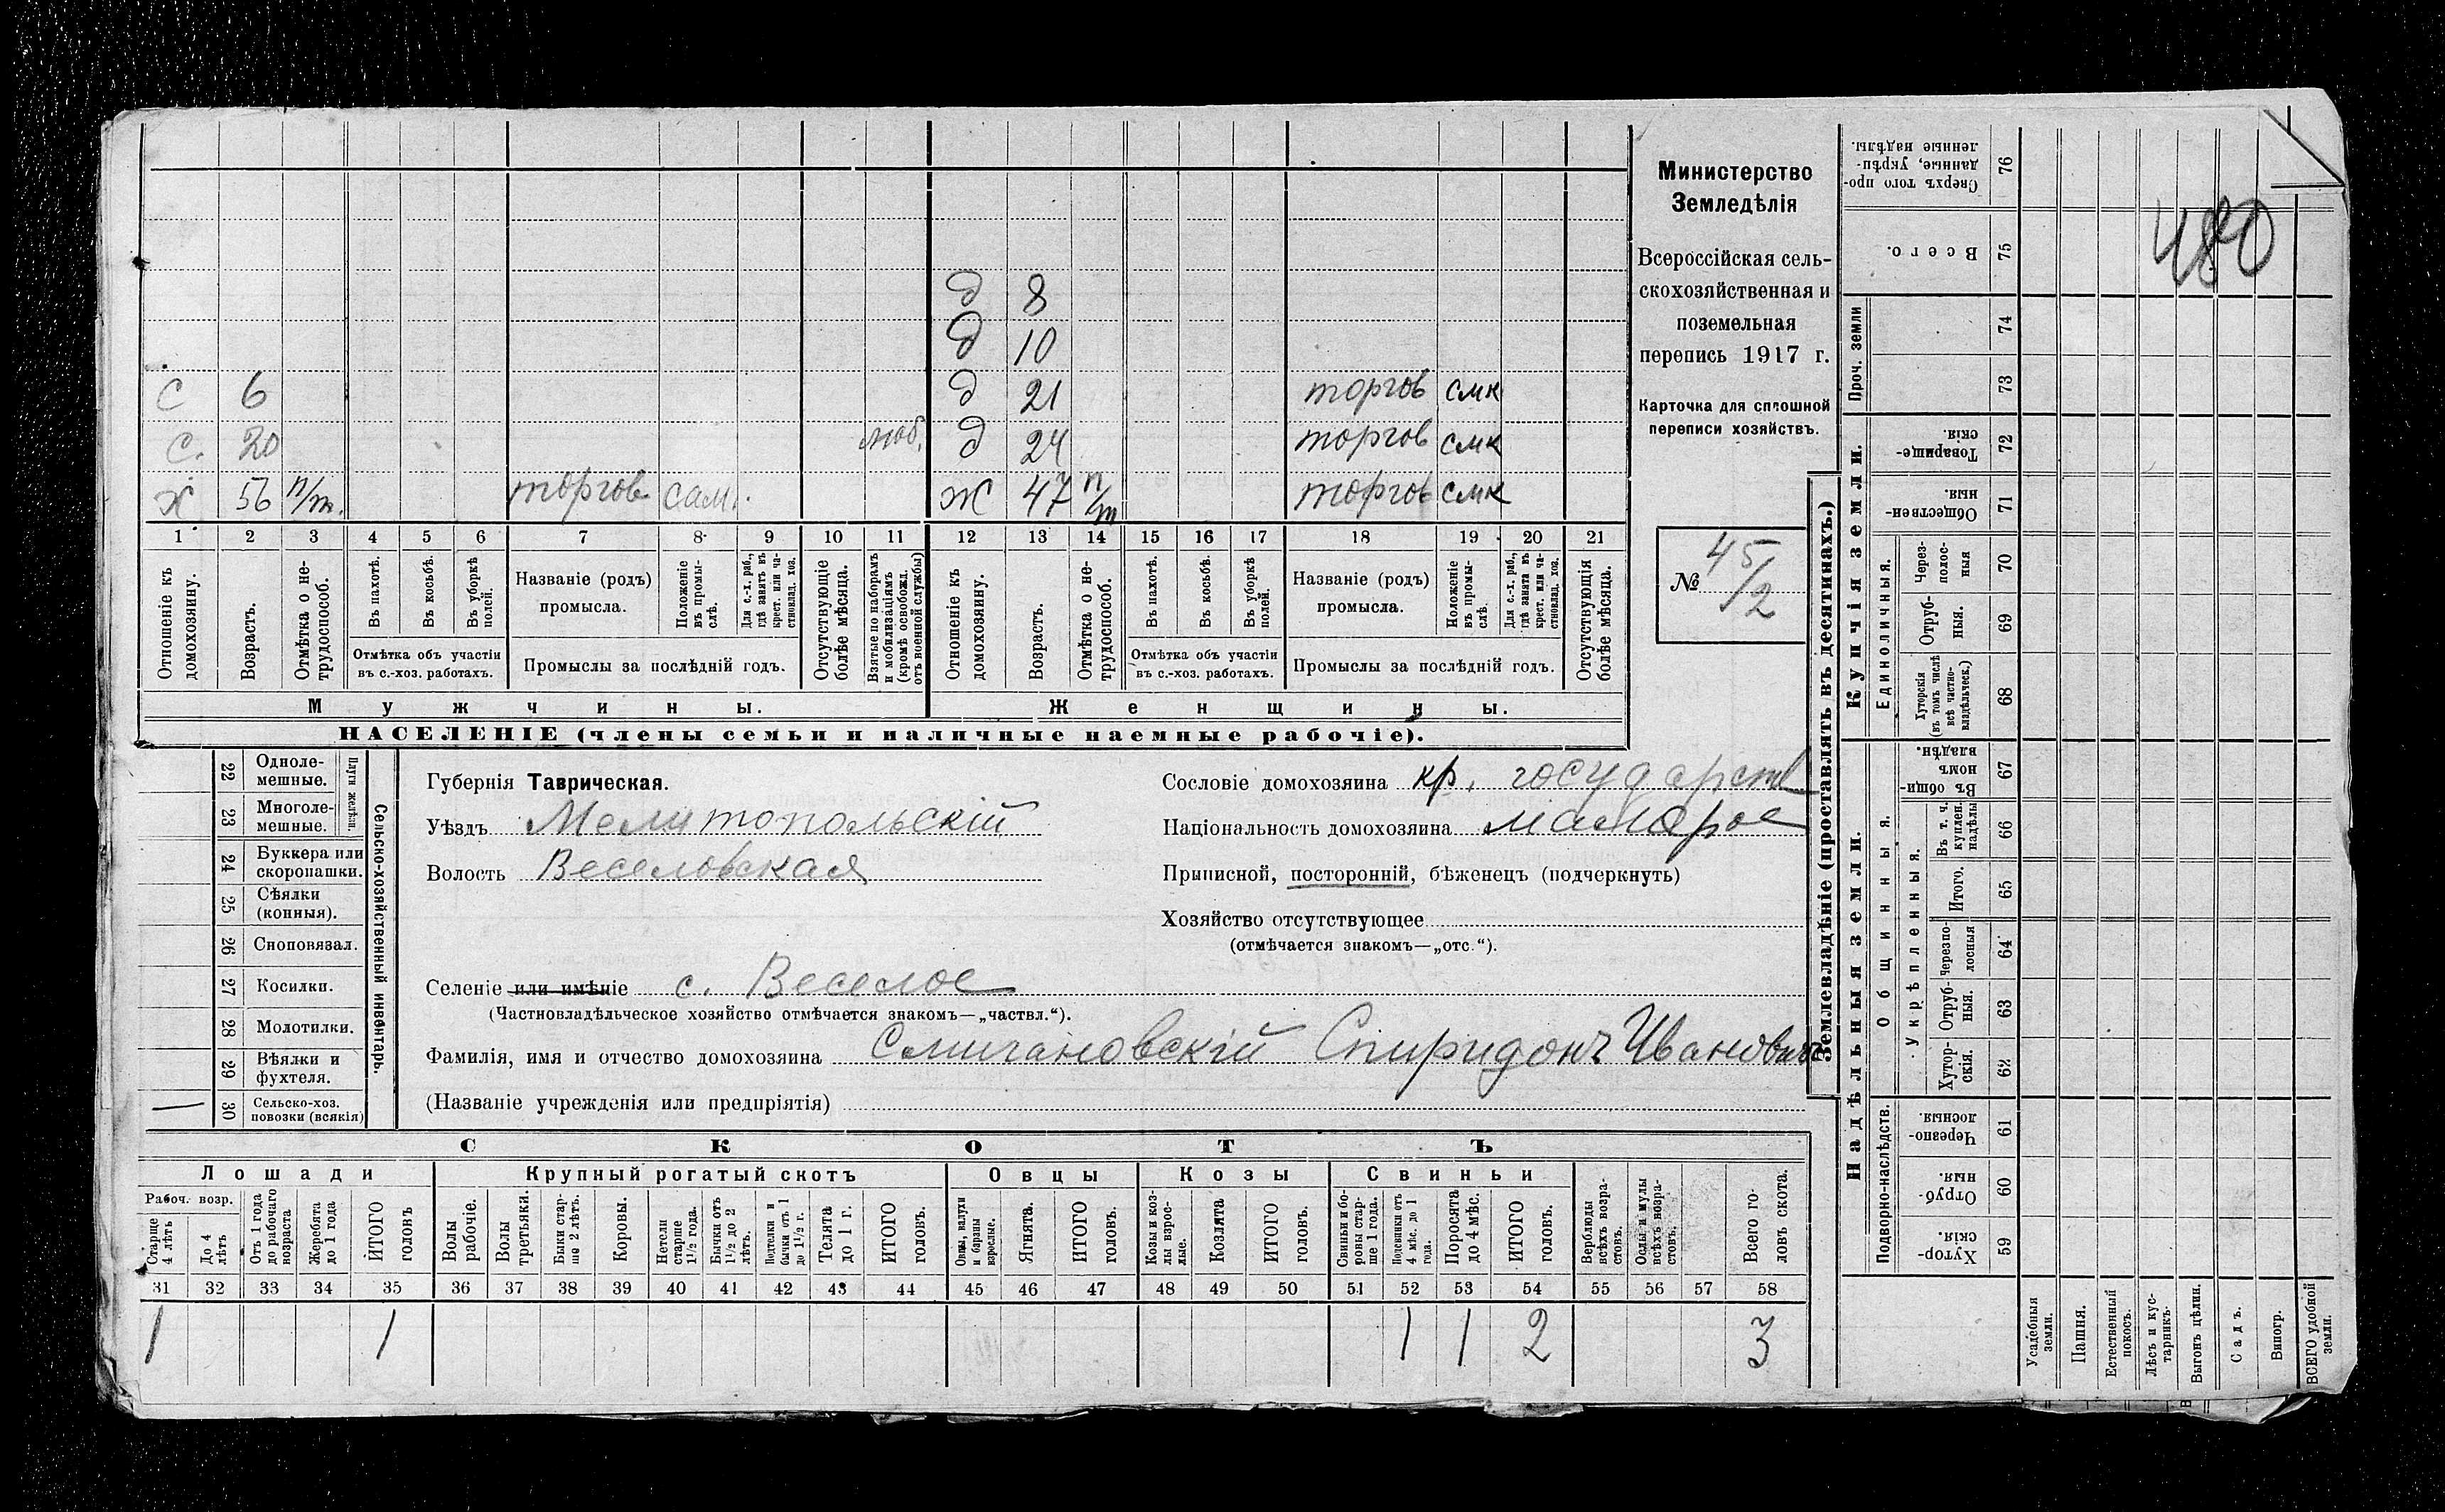 480
Министерство
Земледѣлія
Всероссійская сель-
скохозяйственная и
поземельная
перепись 1917 г.
Карточка для сплошной
переписи хозяйствъ.
№ 45/2
д 8
д 10
с 6 д 21 торгов смк
с. 20 моб. д 24 торгов смк
х 56 н/т. торгов сам. ж 47 н/т торгов смк
1 2 3 4 5 6 7 8 9 10 11 12 13 14 15 16 17 18 19 20 21
Отношеніе къ домохозяину.
Возрастъ.
Отмѣтка о не-трудоспособ.
Въ пахотѣ.
Въ косьбѣ.
Въ уборкѣ полей.
Отмѣтка объ участіи въ с.-хоз. работахъ.
Названіе (родъ) промысла.
Положеніе въ промы-слѣ.
Для с.-х. раб., гдѣ занятъ въ крест. или ча-стновлад. хоз.
Промыслы за послѣдній годъ.
Отсутствующіе болѣе мѣсяца.
Взятые по наборамъ и мобилизаціямъ (кромѣ освобожд. отъ военной службы)
Отношеніе къ домохозяину.
Возрастъ.
Отмѣтка о не-трудоспособ.
Въ пахотѣ.
Въ косьбѣ.
Въ уборкѣ полей.
Отмѣтка объ участіи въ с.-хоз. работахъ.
Названіе (родъ) промысла.
Положеніе въ промы-слѣ.
Для с.-х. раб., гдѣ занята въ крест. или ча-стновлад. хоз.
Промыслы за послѣдній годъ.
Отсутствующія болѣе мѣсяца.
Мужчины. Женщины.
НАСЕЛЕНІЕ (члены семьи и наличные наемные рабочіе).
Сельско-хозяйственный инвентарь.
Плуги желѣзн.
22 Одноле-мешные.
23 Многоле-мешные.
24 Буккера или скоропашки.
25 Сѣялки (конныя).
26 Сноповязал.
27 Косилки.
28 Молотилки.
29 Вѣялки и фухтеля.
— 30 Сельско-хоз. повозки (всякія)
Губернія Таврическая.
Уѣздъ Мелитопольскій
Волость Веселовская
Сословіе домохозяина кр. государств
Національность домохозяина малорос
Приписной, посторонній, бѣженецъ (подчеркнуть)
Хозяйство отсутствующее
(отмѣчается знакомъ—„отс.“).
Селеніе или имѣніе с. Веселое
(Частновладѣльческое хозяйство отмѣчается знакомъ—„частвл.“).
Фамилія, имя и отчество домохозяина Смигановскій Спиридонъ Ивановичъ
(Названіе учрежденія или предпріятія)
СКОТЪ
Лошади Крупный рогатый скотъ Овцы Козы Свиньи
Рабоч. возр.
Старше 4 лѣтъ
До 4 лѣтъ
Отъ 1 года до рабочаго возраста
Жеребята до 1 года
ИТОГО головъ
Волы рабочіе.
Волы третьяки.
Быки стар-ше 2 лѣтъ.
Коровы.
Нетели старше 1½ года.
Бычки отъ 1½ до 2 лѣтъ.
Подтелки и бычки отъ 1 до 1½ г.
Телята до 1 г.
ИТОГО головъ.
Овцы, валухи и бараны взрослые.
Ягнята.
ИТОГО головъ.
Козы и коз-лы взрос-лые.
Козлята
ИТОГО головъ.
Свиньи и бо-ровы стар-ше 1 года.
Подсвинки отъ 4 мѣс. до 1 года.
Поросята до 4 мѣс.
ИТОГО головъ.
Верблюды всѣхъ возра-стовъ.
Ослы и мулы всѣхъ возра-стовъ.
Всего го-ловъ скота.
31 32 33 34 35 36 37 38 39 40 41 42 43 44 45 46 47 48 49 50 51 52 53 54 55 56 57 58
1 1 1 1 2 3
Землевладѣніе (проставлять въ десятинахъ.)
Надѣльныя земли. Купчія земли. Проч. земли
Подворно-наслѣдств.
Общинныя.
Укрѣпленныя.
Единоличныя.
Сверхъ того про-данные, укрѣп-ленные надѣлы. 76
Всего. 75
74
73
Товарище-скія. 72
Обществен-ныя. 71
Через-полос-ныя 70
Отруб-ныя. 69
Хуторскія (въ томъ числѣ всѣ частно-владѣльческ.) 68
Въ общи-номъ владѣн. 67
Въ т. ч. куплен. надѣлы 66
Итого. 65
Черезпо-лосныя 64
Отруб-ныя. 63
Хутор-скія. 62
Черезпо-лосныя 61
Отруб-ныя. 60
Хутор-скія. 59
Усадебныя земли.
Пашня.
Естественный покосъ.
Лѣсъ и кус-тарникъ.
Выгонъ цѣлин.
Садъ.
Виногр.
ВСЕГО удобной земли.